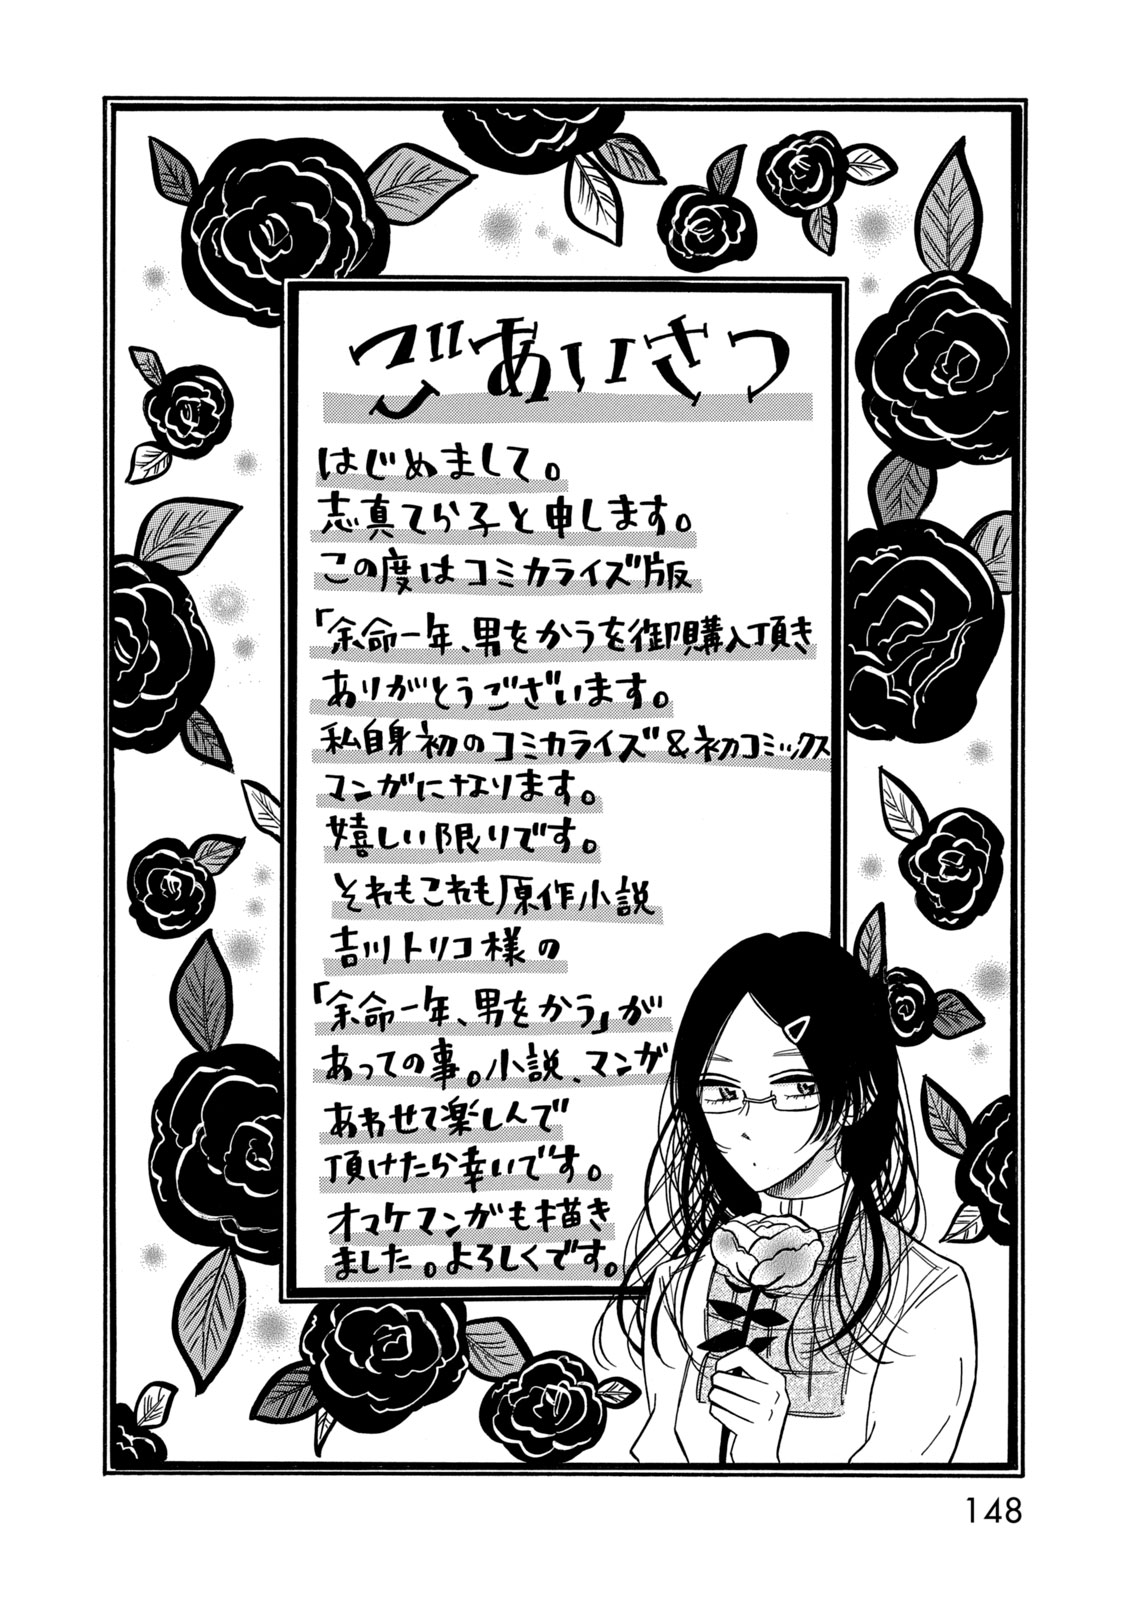 ごあいさつ
はじめまして。
志真てら子と申します。
この度はコミカライズ版
「余命一年、男をかうを御購入頂き
ありがとうございます。
私自身初のコミカライズ&初コミックス
マンガになります。
嬉しい限りです。
それもこれも原作小説
吉川トリコ様の
「余命一年、男をかう」が
あっての事。小説、マンガ
あわせて楽しんで
頂けたら幸いです。
オマケマンガも描き
ました。よろしくです。
148